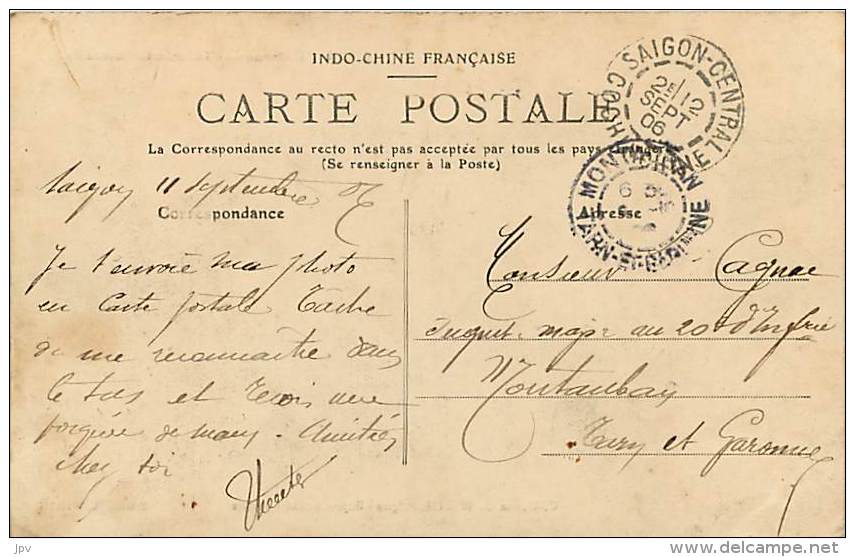 INDO-CHINE FRANÇAISE
CARTE POSTALE
La Correspondance au recto n'est pas acceptée par tous les pays étrangers
(Se renseigner à la Poste)
SAIGON-CENTRAL
COCHINCHINE
2E/12
SEPT
06
MONTAUBAN
TARN-ET-GARONNE
Saigon 11 Septembre 06
Correspondance
Adresse
Je t'envoie ma photo
en Carte postale tache
de me reconnaitre dans
le tas et reçois une
poignée de main. Amitiés
chez toi
Monsieur Cagnac
Sergent-major au 20e d'Infrie
Montauban
Tarn et Garonne
jpv
www.delcampe.net